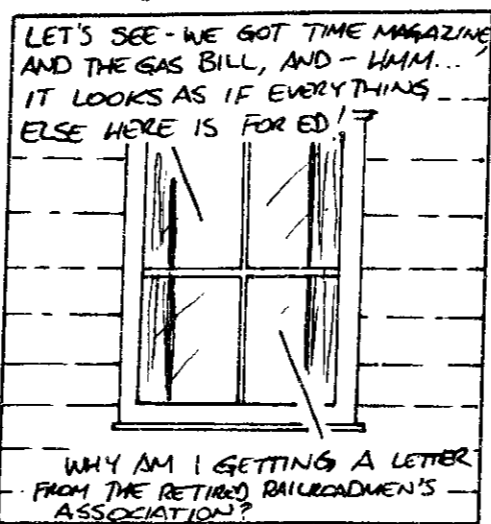 LET'S SEE - WE GOT TIME MAGAZINE,
AND THE GAS BILL, AND - HMM...
IT LOOKS AS IF EVERYTHING
ELSE HERE IS FOR ED!
WHY AM I GETTING A LETTER
FROM THE RETIRED RAILROADMEN'S
ASSOCIATION?